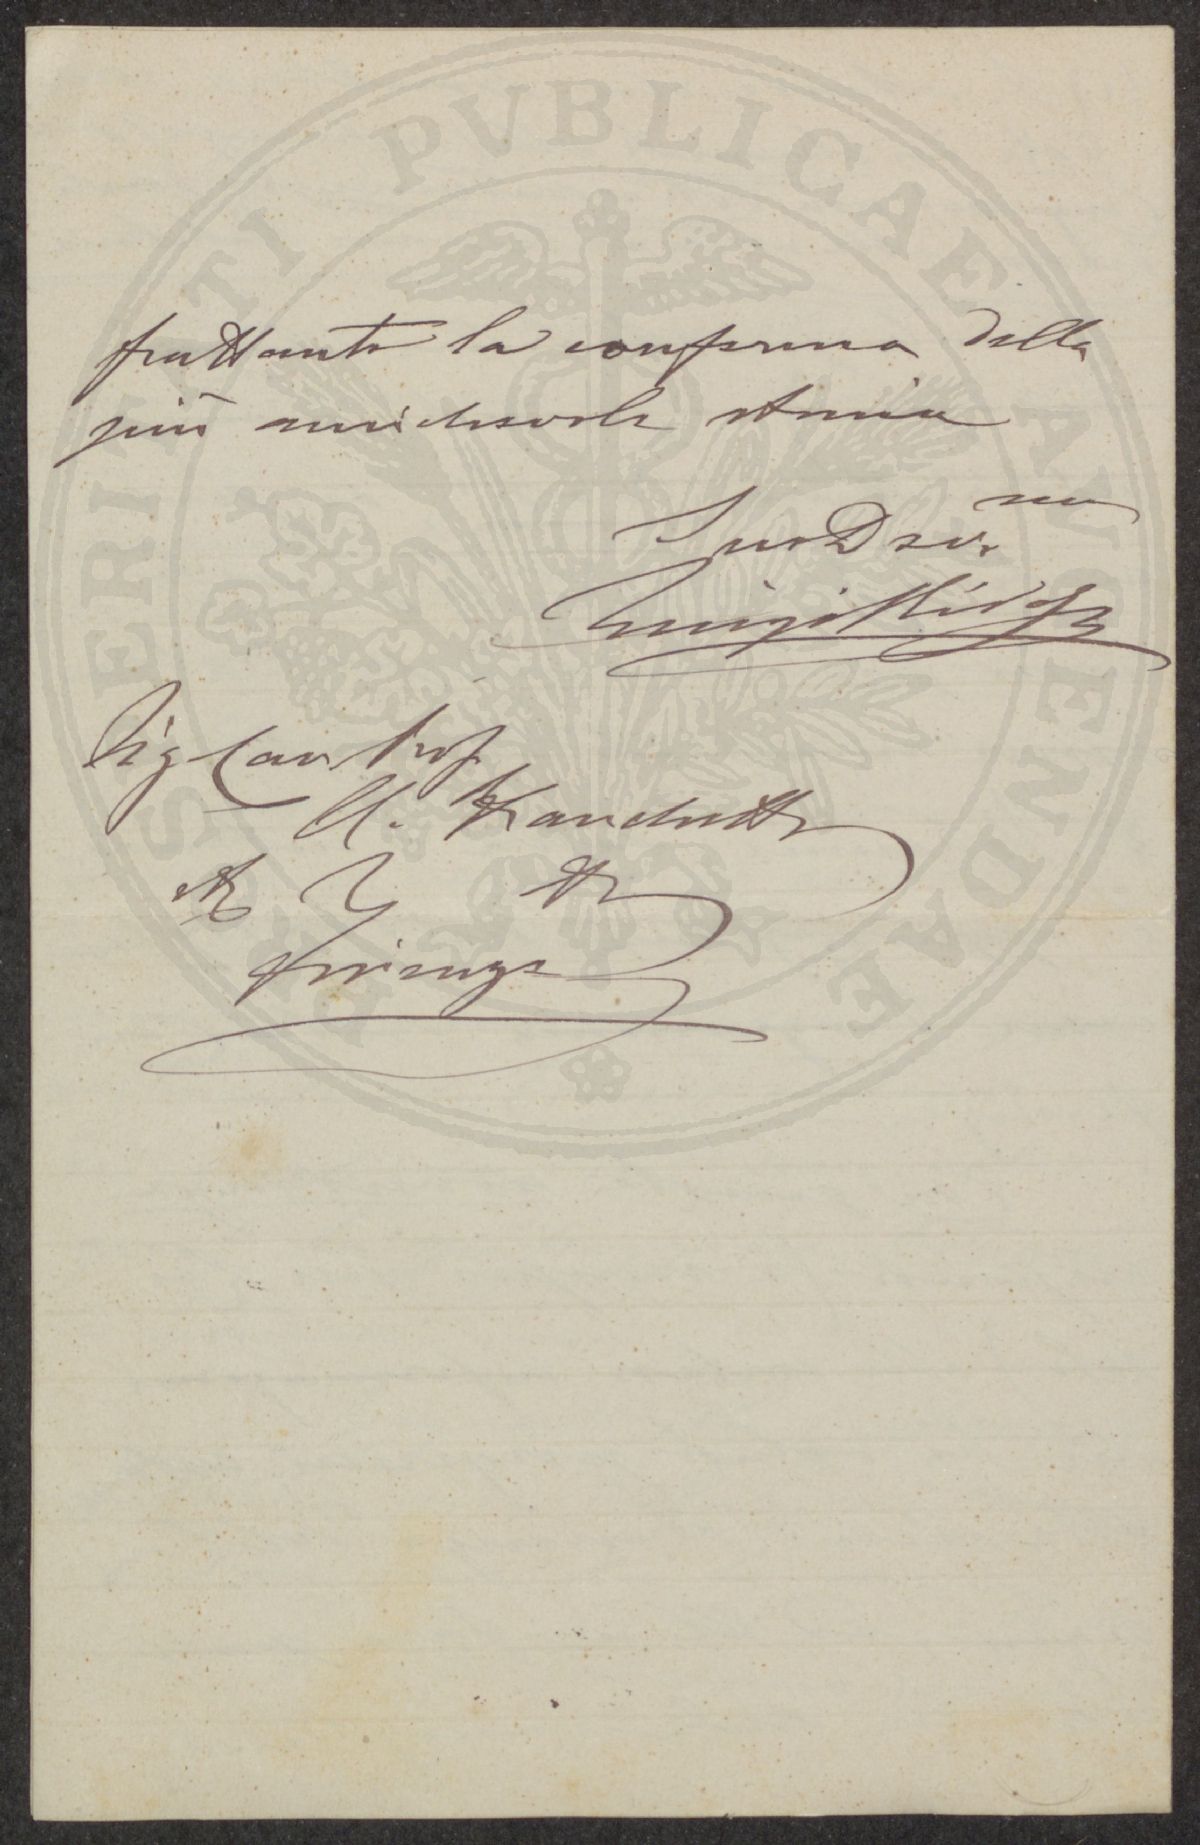 PVBLICAE
frattanto la conferma della
più amichevole stima
Suo Dev.mo
Luigi
Sig Cav Prof
A.
Firenze